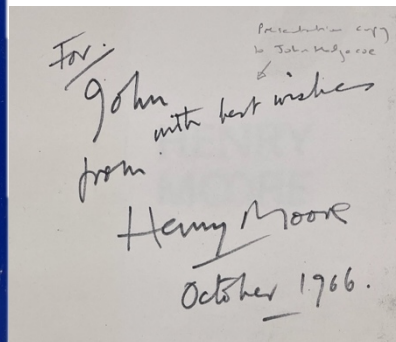 Presentation copy
to John Hedgecoe
For.
John
with best wishes
from
Henry Moore
October 1966.
HENRY
MOORE